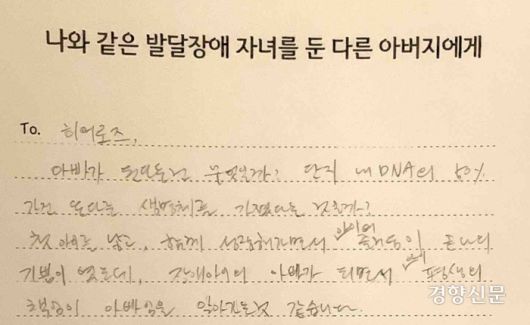 나와 같은 발달장애 자녀를 둔 다른 아버지에게
To. 히어로즈,
아빠가 된다는건 무엇일까? 단지 내 DNA의 50%
가진 또다른 생명체를 가졌다는 것일까?
첫 아이를 낳고, 함께 성장해가면서 아이의 존재의
기쁨이 었는데, 장애아이의 아빠가 되면서 평생의
책임이 아빠임을 알아가는것 같습니다.
경향신문